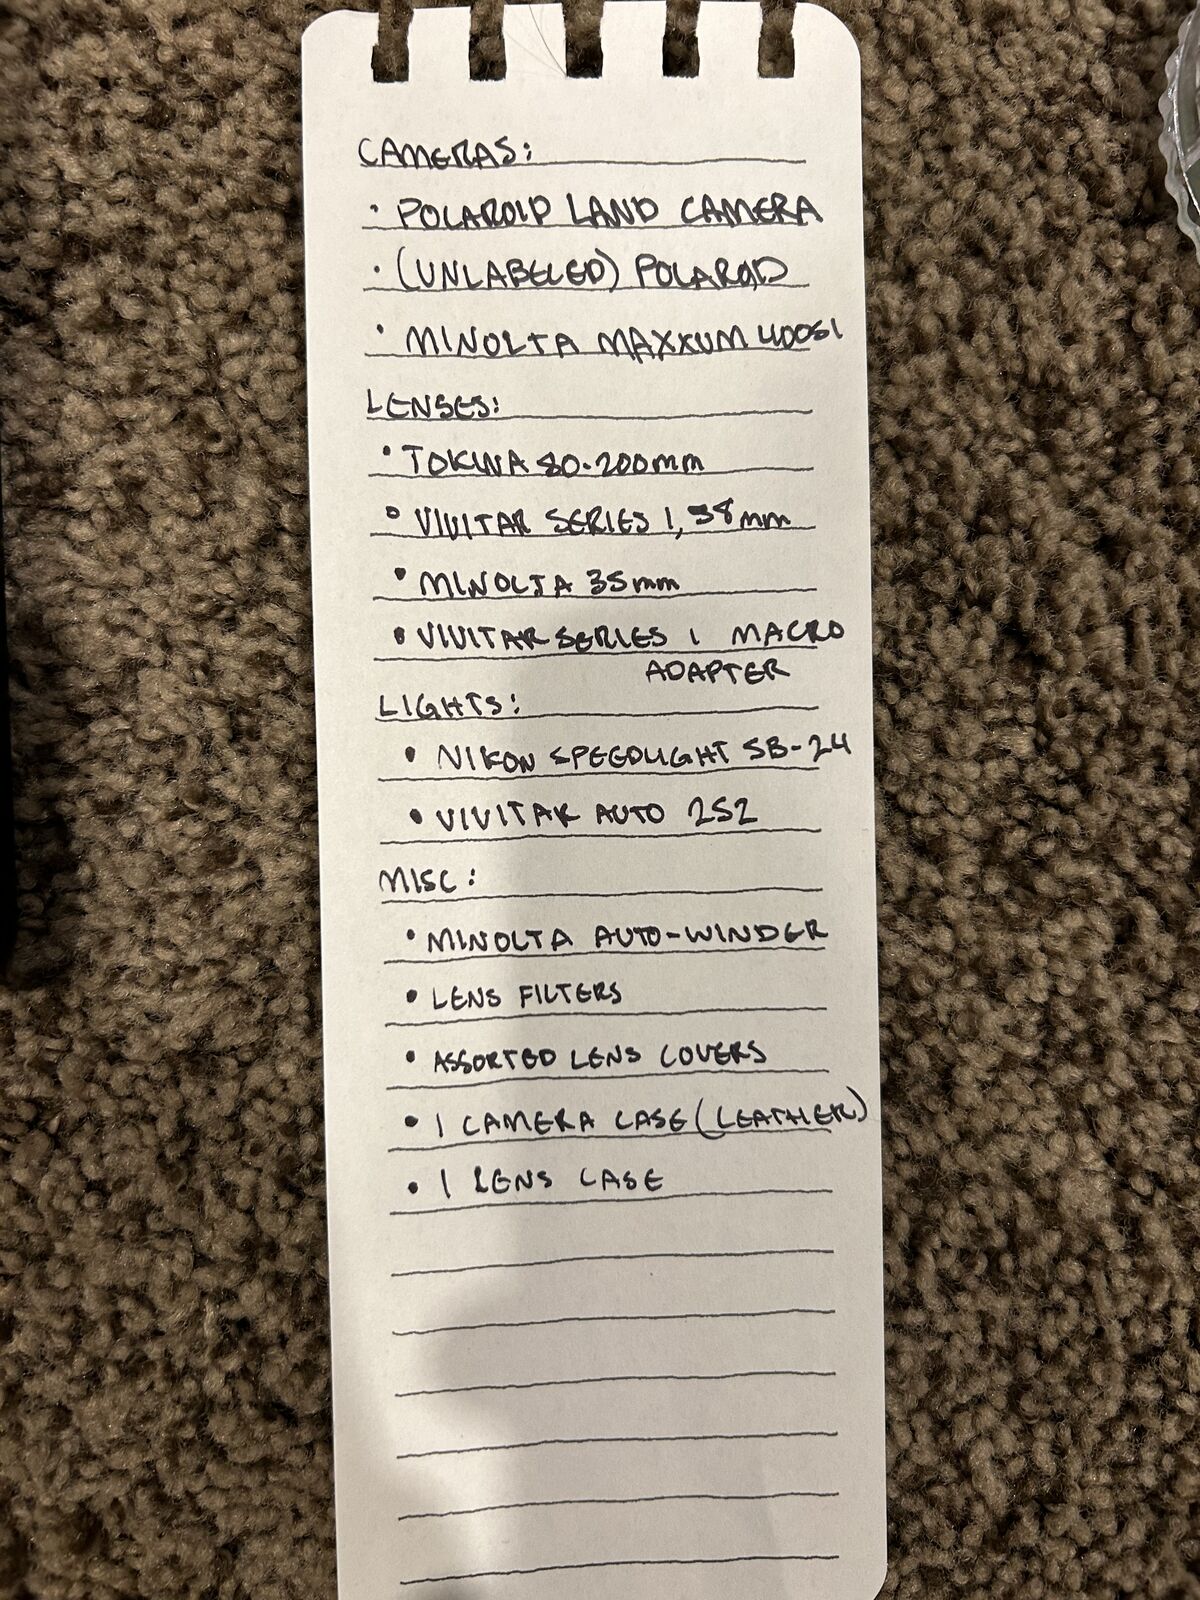 CAMERAS:
· POLAROID LAND CAMERA
· (UNLABELED) POLAROID
· MINOLTA MAXXUM 400SI
LENSES:
· TOKINA 80-200mm
· VIVITAR SERIES 1, mm
· MINOLTA 35mm
· VIVITAR SERIES 1 MACRO
ADAPTER
LIGHTS:
· NIKON SPEEDLIGHT SB-24
· VIVITAR AUTO 252
MISC:
· MINOLTA AUTO-WINDER
· LENS FILTERS
· ASSORTED LENS COVERS
· 1 CAMERA CASE (LEATHER)
· 1 LENS CASE